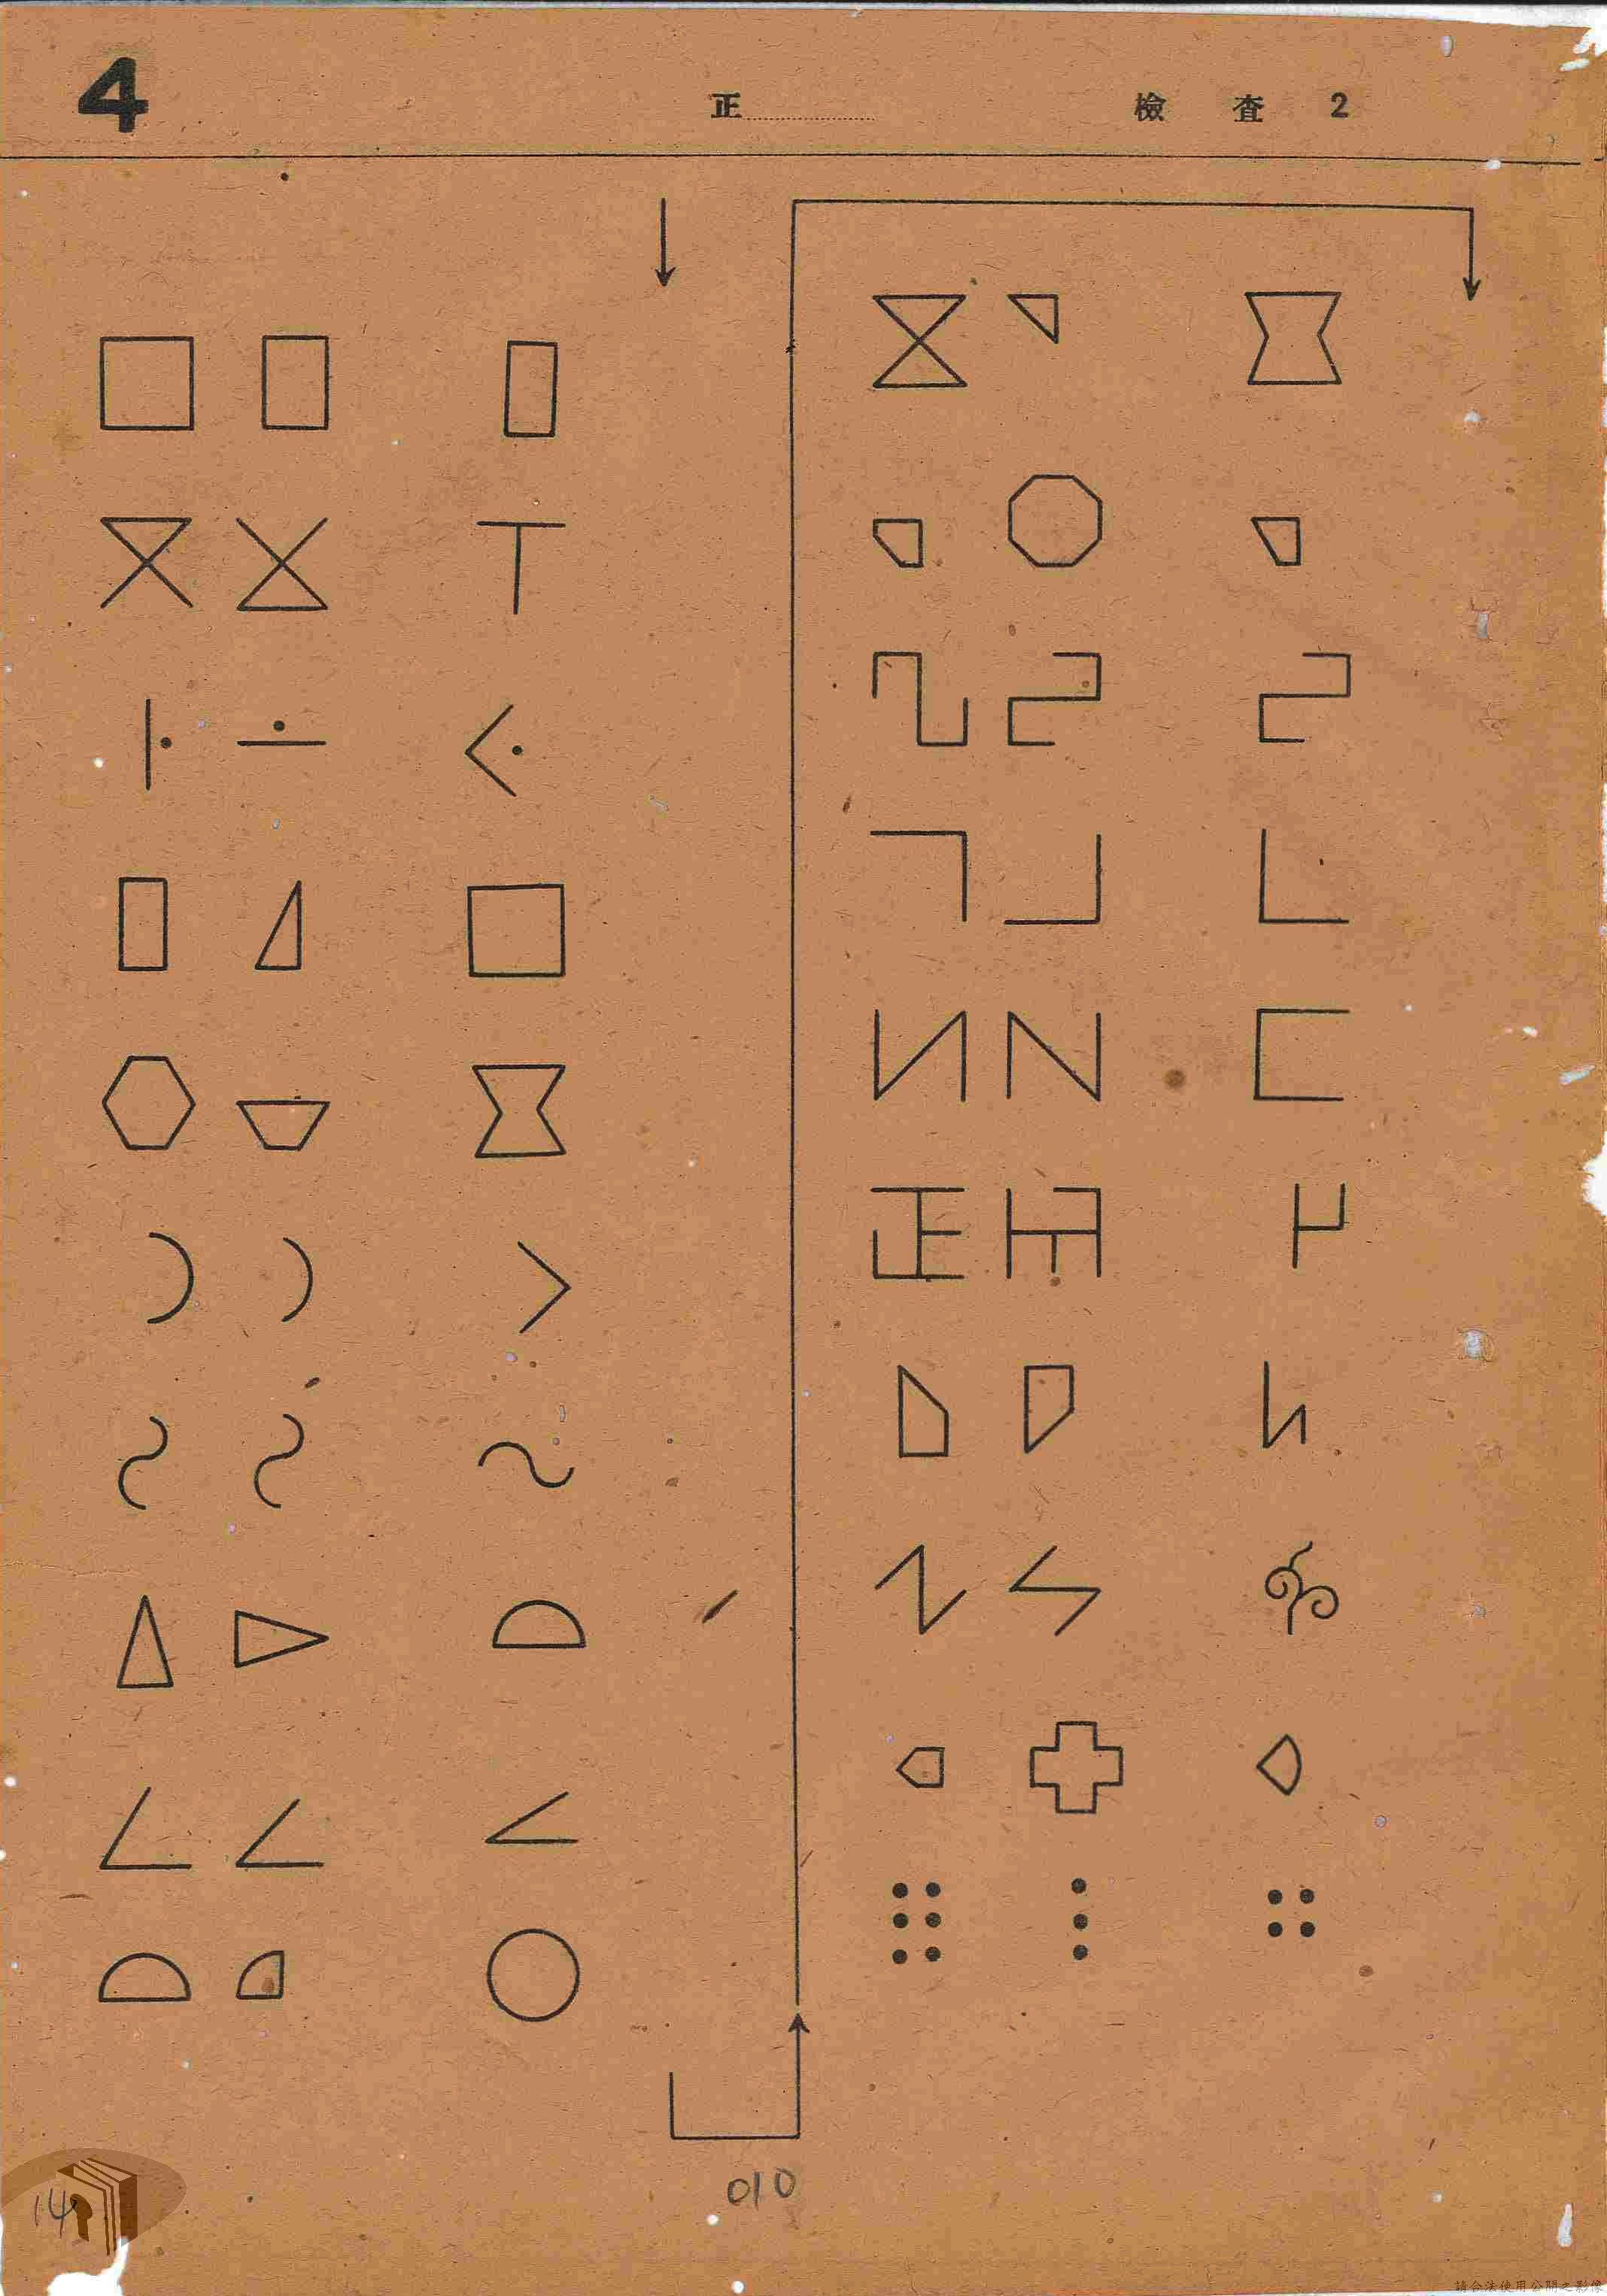 4 正 檢 查 2
010
14
請合法使用公開之影像